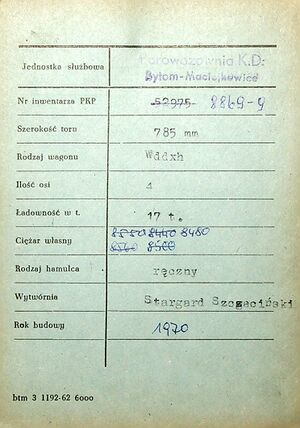 Parowozownia K.D.
Jednostka służbowa Bytom-Maciejkowice
Nr inwentarza PKP 52975 8869-9
Szerokość toru 785 mm
Rodzaj wagonu Wddxh
Ilość osi 4
Ładowność w t. 17 t.
Ciężar własny 8550 8440 8480
8560 8500
Rodzaj hamulca ręczny
Wytwórnia Stargard Szczeciński
Rok budowy 1970
btm 3 1192-62 6000